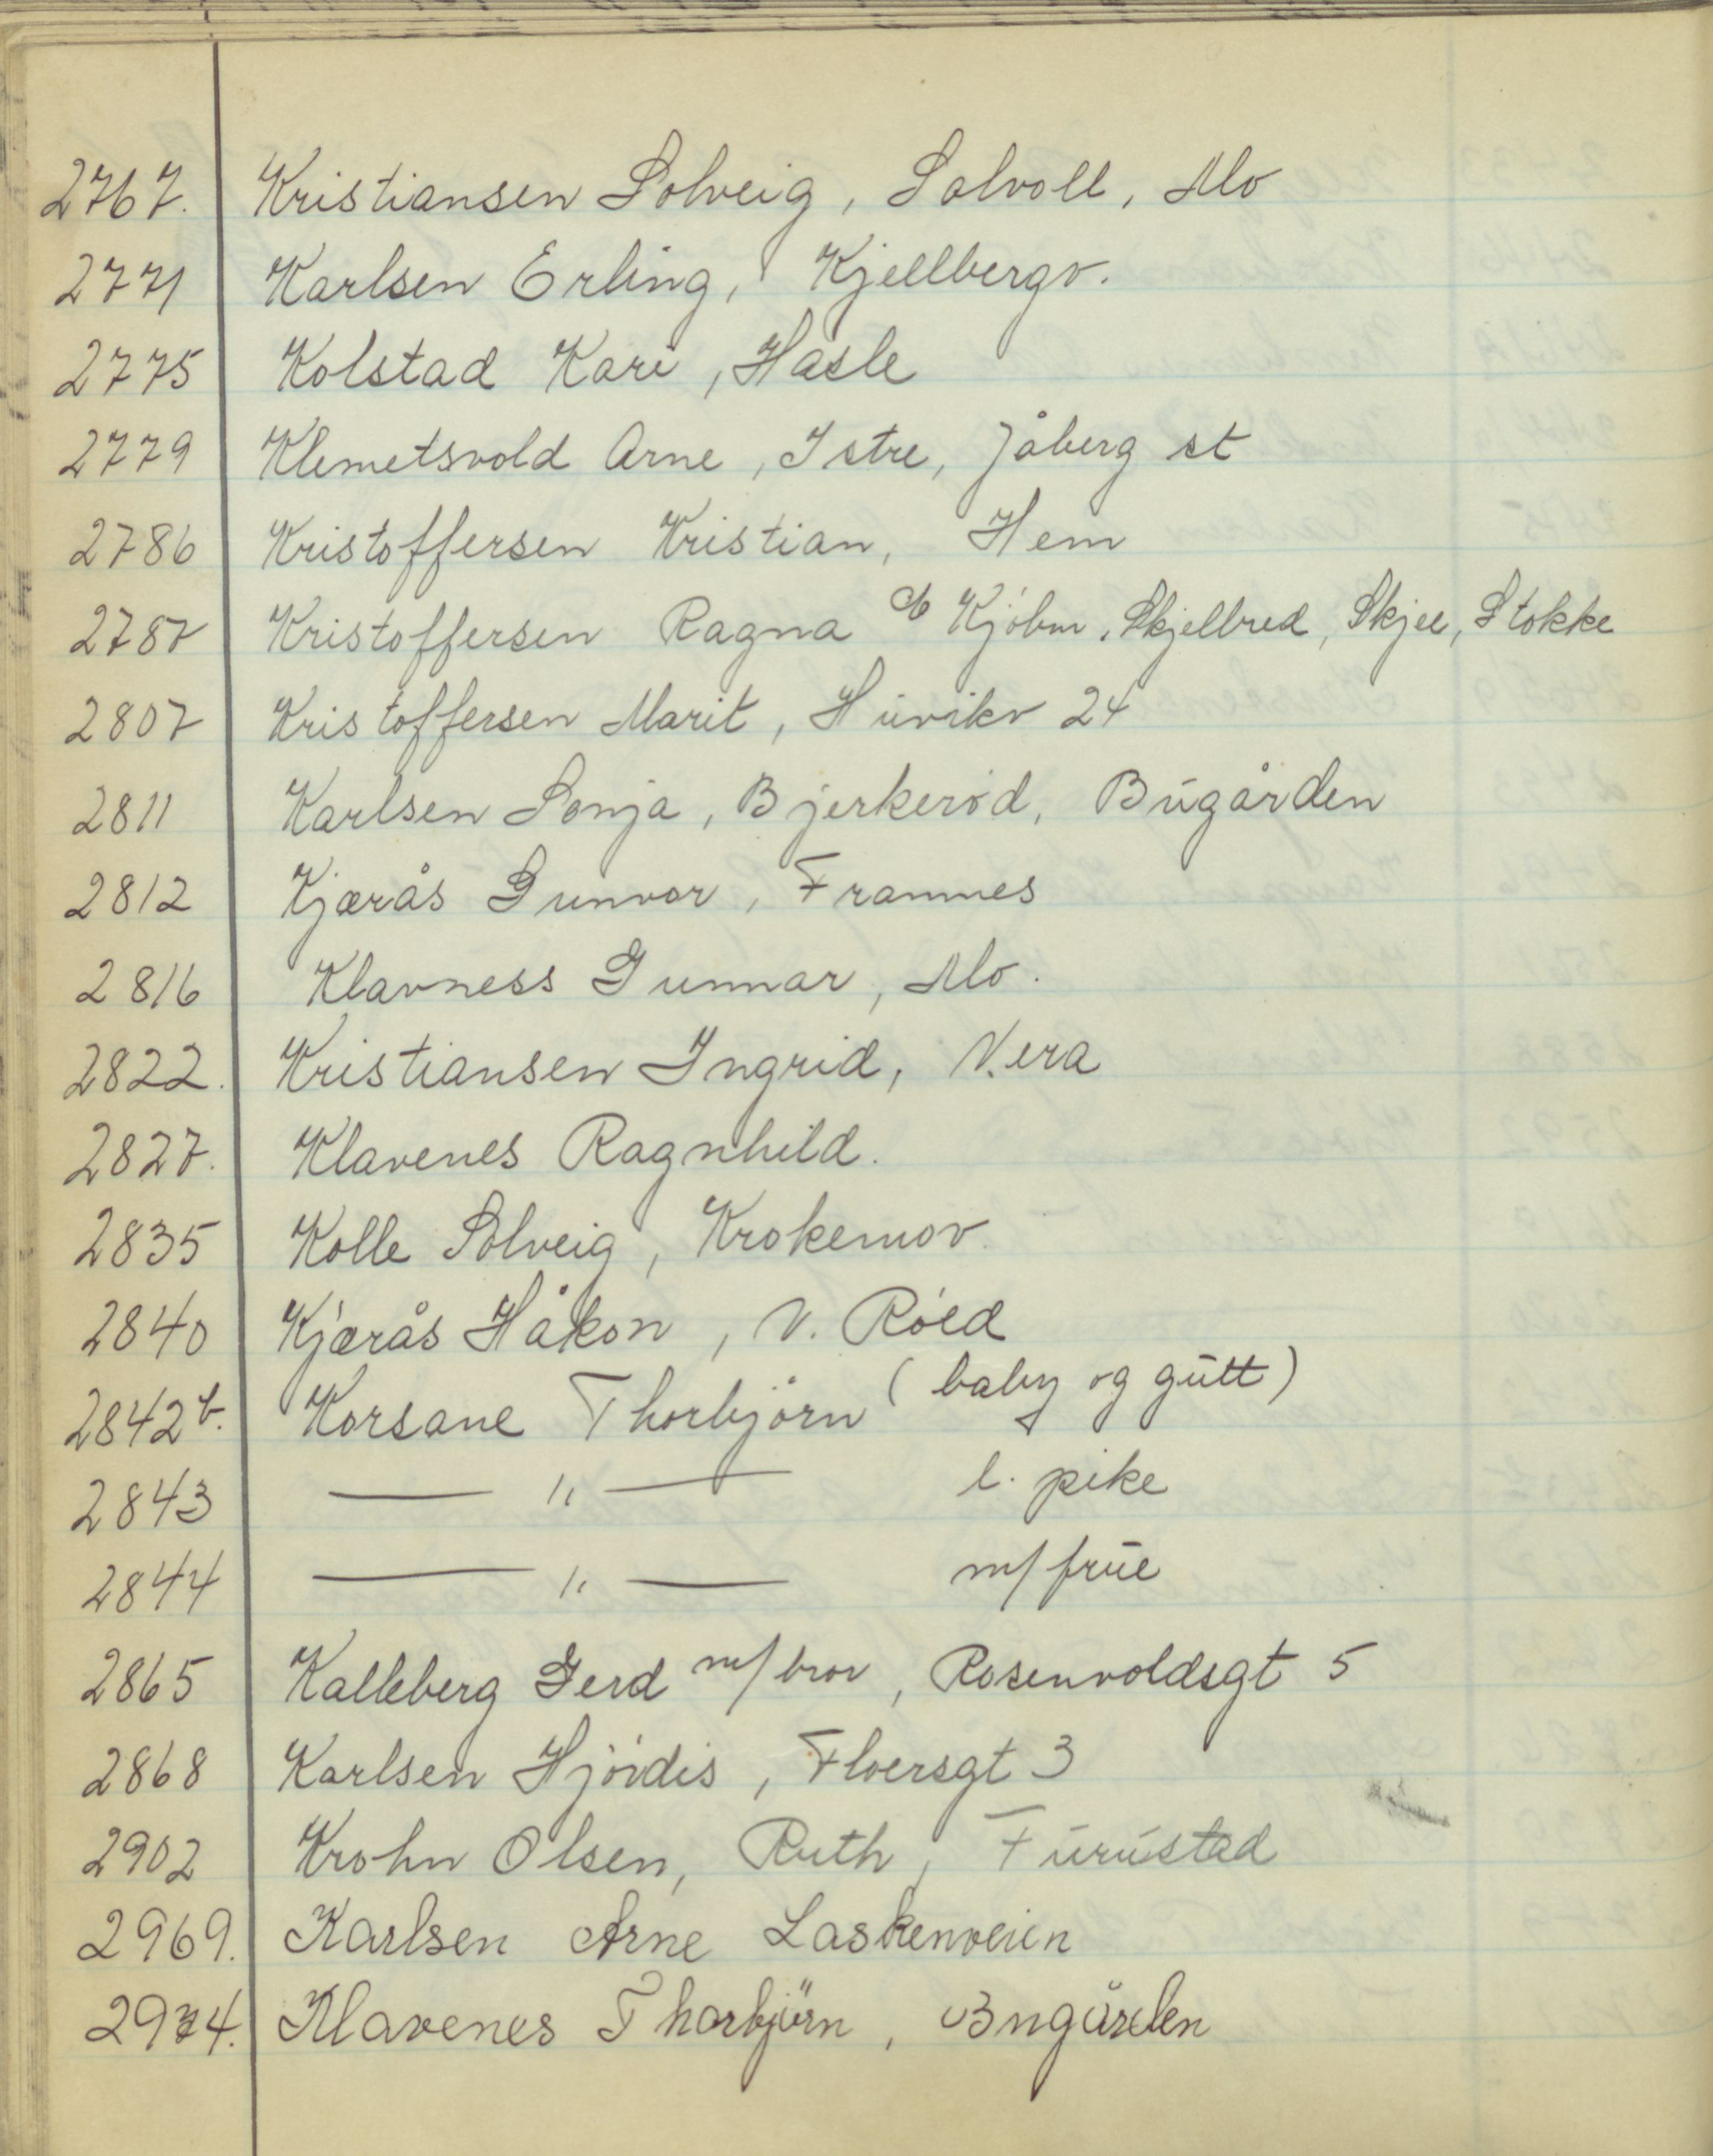 2767. Kristiansen Solveig, Solvoll, Mo
2771 Karlsen Erling, Kjellbergv.
2775 Kolstad Kari, Hasle
2779 Klemetsvold Arne, Istre, Jåberg st
2786 Kristoffersen Kristian, Hem
2787 Kristoffersen Ragna c/o Kjöbm. Skjelbred, Skjee, Stokke
2807 Kristoffersen Marit, Huvikv 24
2811 Karlsen Sonja, Bjerkeröd, Bugården
2812 Kjærås Gunvor, Framnes
2816 Klavness Gunnar, Mo.
2822. Kristiansen Ingrid, Vera
2827. Klavenes Ragnhild.
2835 Kolle Solveig, Krokemov.
2840 Kjærås Håkon, V. Röed
2842b. Korsane Thorbjörn (baby og gutt)
2843 — " — l. pike
2844 — " — m/ frue
2865 Kalleberg Gerd m/bror, Rosenvoldsgt 5
2868 Karlsen Hjördis, Floersgt 3
2902 Krohn Olsen, Ruth, Furustad
2969. Karlsen Arne Laskenveien
2974. Klavenes Thorbjörn, Bugården